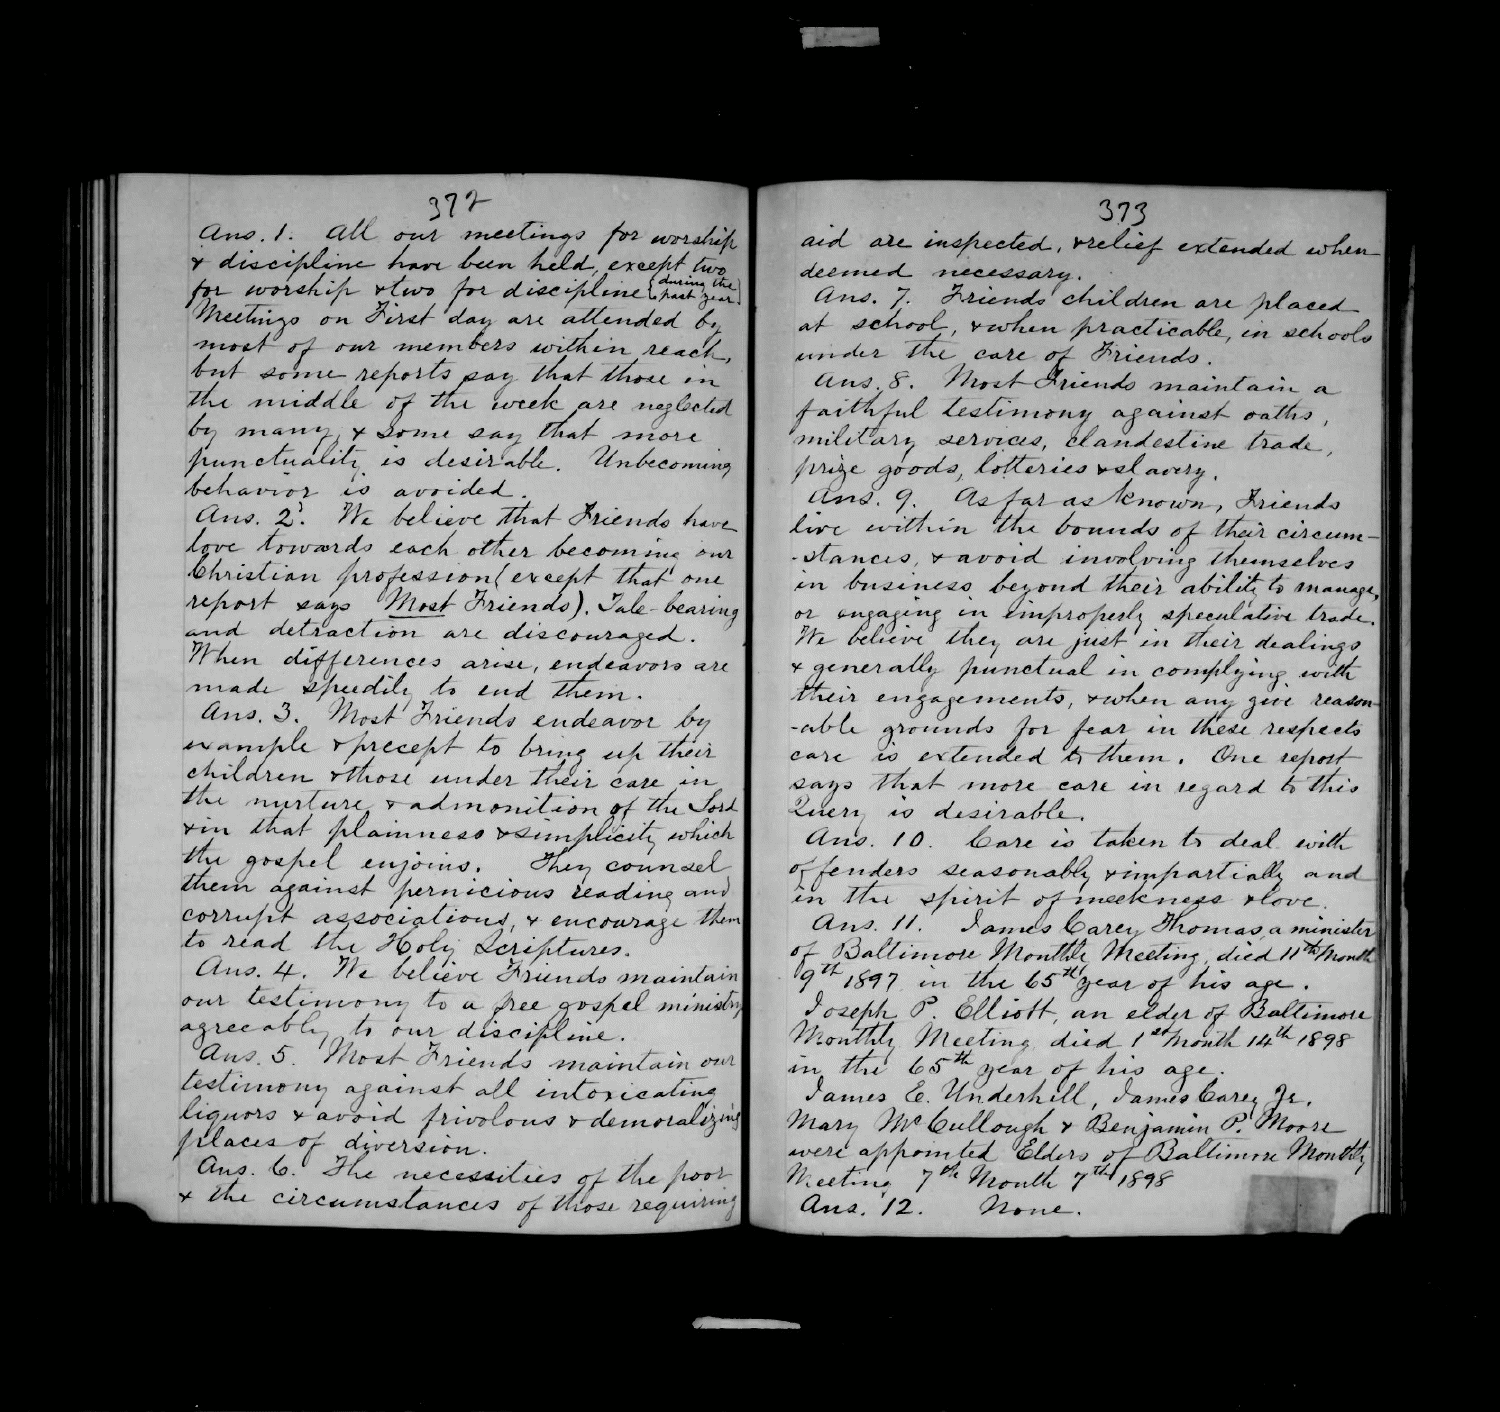 372
Ans. 1. All our meetings for worship
& discipline have been held, except two
for worship & two for discipline (during the
past year.
Meetings on First day are attended by
most of our members within reach,
but some reports say that those in
the middle of the week are neglected
by many, & some say that more
punctuality is desirable. Unbecoming
behavior is avoided.
Ans. 2. We believe that Friends have
love towards each other becoming our
Christian profession (except that one
report says Most Friends). Tale-bearing
and detraction are discouraged.
When differences arise, endeavors are
made speedily to end them.
Ans. 3. Most Friends endeavor by
example & precept to bring up their
children & those under their care in
the nurture & admonition of the Lord
& in that plainness & simplicity which
the gospel enjoins. They counsel
them against pernicious reading and
corrupt associations, & encourage them
to read the Holy Scriptures.
Ans. 4. We believe Friends maintain
our testimony to a free gospel ministry
agreeably to our discipline.
Ans. 5. Most Friends maintain our
testimony against all intoxicating
liquors & avoid frivolous & demoralizing
places of diversion.
Ans. 6. The necessities of the poor
& the circumstances of those requiring
373
aid are inspected, & relief extended when
deemed necessary.
Ans. 7. Friends children are placed
at school, & when practicable, in schools
under the care of Friends.
Ans. 8. Most Friends maintain a
faithful testimony against oaths,
military services, clandestine trade,
prize goods, lotteries & slavery.
Ans. 9. As far as known, Friends
live within the bounds of their circum-
-stances, & avoid involving themselves
in business beyond their ability to manage,
or engaging in improperly speculative trade.
We believe they are just in their dealings
& generally punctual in complying with
their engagements, & when any give reason-
-able grounds for fear in these respects
care is extended to them. One report
says that more care in regard to this
Query is desirable.
Ans. 10. Care is taken to deal with
offenders seasonably & impartially and
in the spirit of meekness & love.
Ans. 11. James Carey Thomas, a minister
of Baltimore Monthly Meeting, died 11th Month
9th 1897 in the 65th year of his age.
Joseph P. Elliott, an elder of Baltimore
Monthly Meeting died 1st Month 14th 1898
in the 65th year of his age.
James E. Underhill, James Carey Jr.
Mary McCullough & Benjamin P. Moore
were appointed Elders of Baltimore Monthly
Meeting 7th Month 7th 1898
Ans. 12. None.